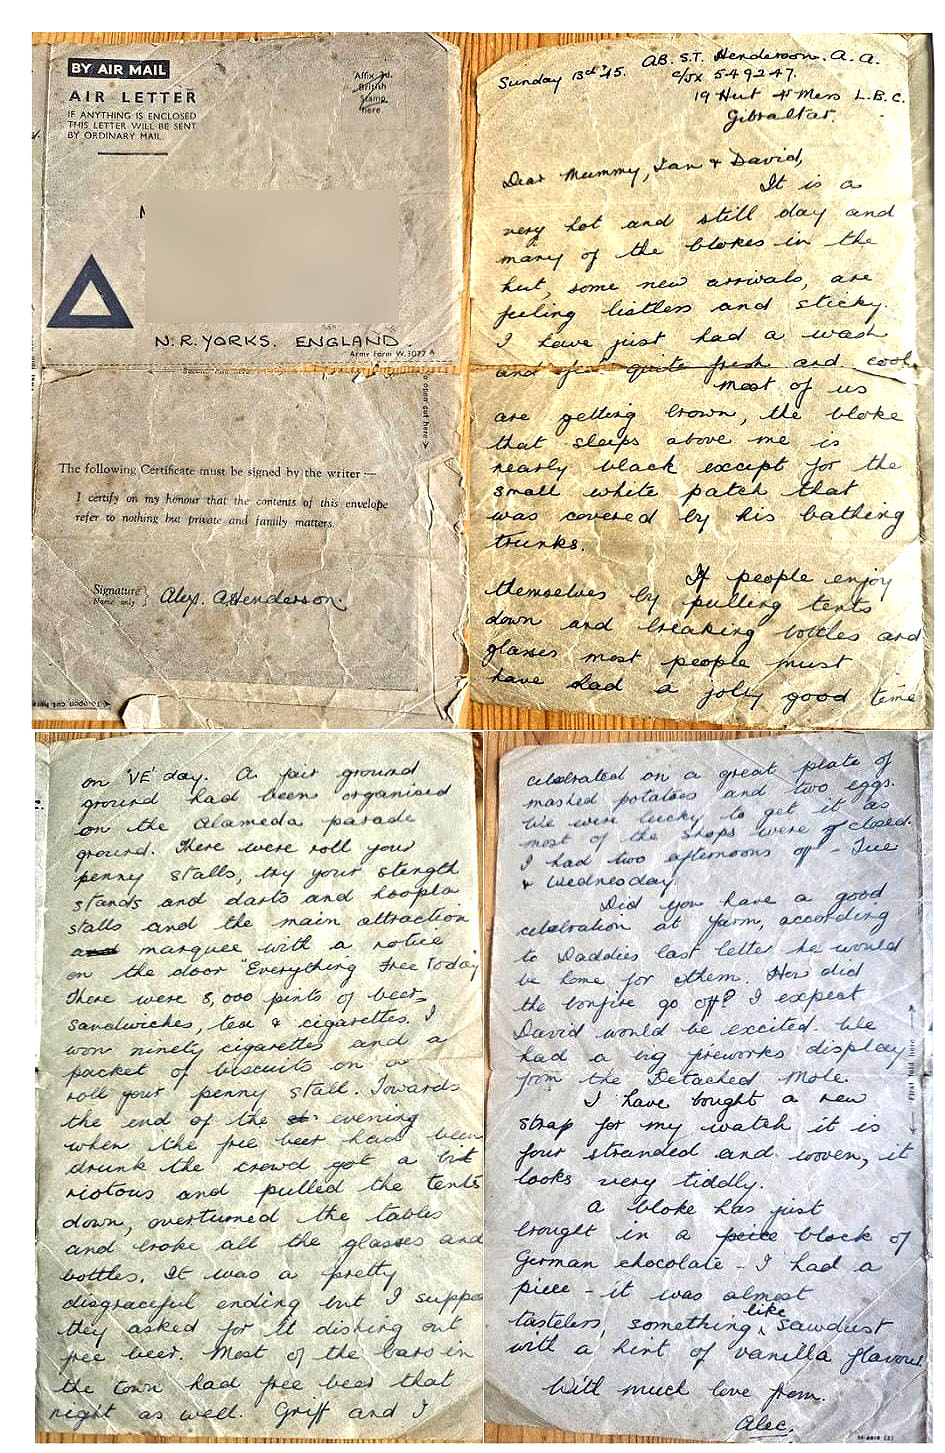 BY AIR MAIL
AIR LETTER
IF ANYTHING IS ENCLOSED
THIS LETTER WILL BE SENT
BY ORDINARY MAIL.
Affix 3d.
British
Stamp
here
N.R. YORKS. ENGLAND.
Army Form W.3077 A
To open cut here
The following Certificate must be signed by the writer:—
I certify on my honour that the contents of this envelope
refer to nothing but private and family matters.
Signature
Name only
Alex. A Henderson.
To open cut here
Sunday 13th '45. AB. S.T. Henderson. A. A.
C/JX 549247.
19 Hut Mess L.B.C.
Gibraltar.
Dear Mummy, Ian & David,
It is a
very hot and still day and
many of the blokes in the
hut, some new arrivals, are
feeling listless and sticky.
I have just had a wash
and feel quite fresh and cool
Most of us
are getting brown, the bloke
that sleeps above me is
nearly black except for the
small white patch that
was covered by his bathing
trunks.
If people enjoy
themselves by pulling tents
down and breaking bottles and
glasses most people must
have had a jolly good time
on 'VE' day. A fair ground
ground had been organised
on the Alameda parade
ground. There were roll your
penny stalls, try your stength
stands and darts and hoopla
stalls and the main attraction
and marquee with a notice
on the door "Everything Free Today
There were 8,000 pints of beer,
sandwiches, tea & cigarettes. I
won ninety cigarettes and a
packet of biscuits on a
roll your penny stall. Towards
the end of the evening
when the free beer had been
drunk the crowd got a bit
riotous and pulled the tents
down, overturned the tables
and broke all the glasses and
bottles. It was a pretty
disgraceful ending but I suppo
they asked for it dishing out
free beer. Most of the bars in
the town had free beer that
night as well. Griff and I
celebrated on a great plate of
mashed potatoes and two eggs.
We were lucky to get it as
most of the shops were closed.
I had two afternoons off - Tue
& Wednesday.
Did you have a good
celebration at Yarm, according
to Daddies last letter he would
be home for them. How did
the bonfire go off? I expect
David would be excited. We
had a big fireworks display
from the Detached Mole.
I have bought a new
strap for my watch it is
four stranded and woven, it
looks very tiddly.
A bloke has just
brought in a peice block of
German chocolate - I had a
piece - it was almost
tasteless, something like sawdust
with a hint of vanilla flavour.
With much love from.
Alec.
First fold here